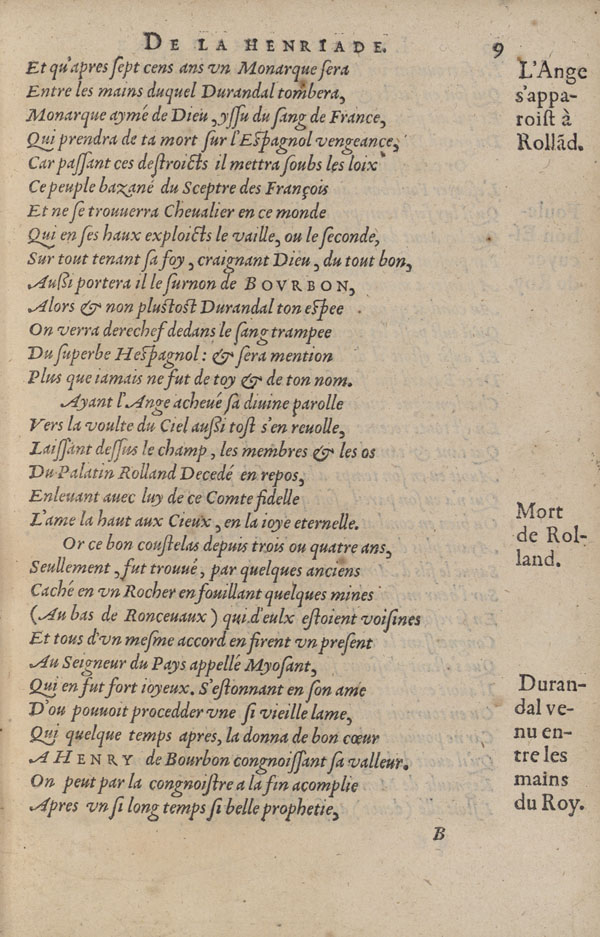 DE LA HENRIADE. 9
Et qu'apres sept cens ans vn Monarque sera
Entre les mains duquel Durandal tombera,
Monarque aymé de Dieu, yssu du sang de France,
Qui prendra de ta mort sur l'Espagnol vengeance,
Car passant ces destroicts il mettra soubs les loix
Ce peuple bazané du Sceptre des François
Et ne se trouuerra Cheualier en ce monde
Qui en ses haux exploicts le vaille, ou le seconde,
Sur tout tenant sa foy, craignant Dieu, du tout bon,
Aussi portera il le surnon de BOVRBON,
Alors & non plustost Durandal ton espee
On verra derechef dedans le sang trampee
Du superbe Hespagnol: & sera mention
Plus que iamais ne fut de toy & de ton nom.
Ayant l'Ange acheué sa diuine parolle
Vers la voulte du Ciel aussi tost s'en reuolle,
Laissant dessus le champ, les membres & les os
Du Palatin Rolland Decedé en repos,
Enleuant auec luy de ce Comte fidelle
L'ame la haut aux Cieux, en la ioye eternelle.
Or ce bon coustelas depuis trois ou quatre ans,
Seullement, fut trouué, par quelques anciens
Caché en vn Rocher en fouillant quelques mines
(Au bas de Ronceuaux) qui d'eulx estoient voisines
Et tous d'vn mesme accord en firent vn present
Au Seigneur du Pays appellé Myosant,
Qui en fut fort ioyeux. S'estonnant en son ame
D'ou pouuoit procedder vne si vieille lame,
Qui quelque temps apres, la donna de bon cœur
A HENRY de Bourbon congnoissant sa valleur.
On peut par la congnoistre a la fin acomplie
Apres vn si long temps si belle prophetie,
B
L'Ange
s'appa-
roist à
Rollãd.
Mort
de Rol-
land.
Duran-
dal ve-
nu en-
tre les
mains
du Roy.